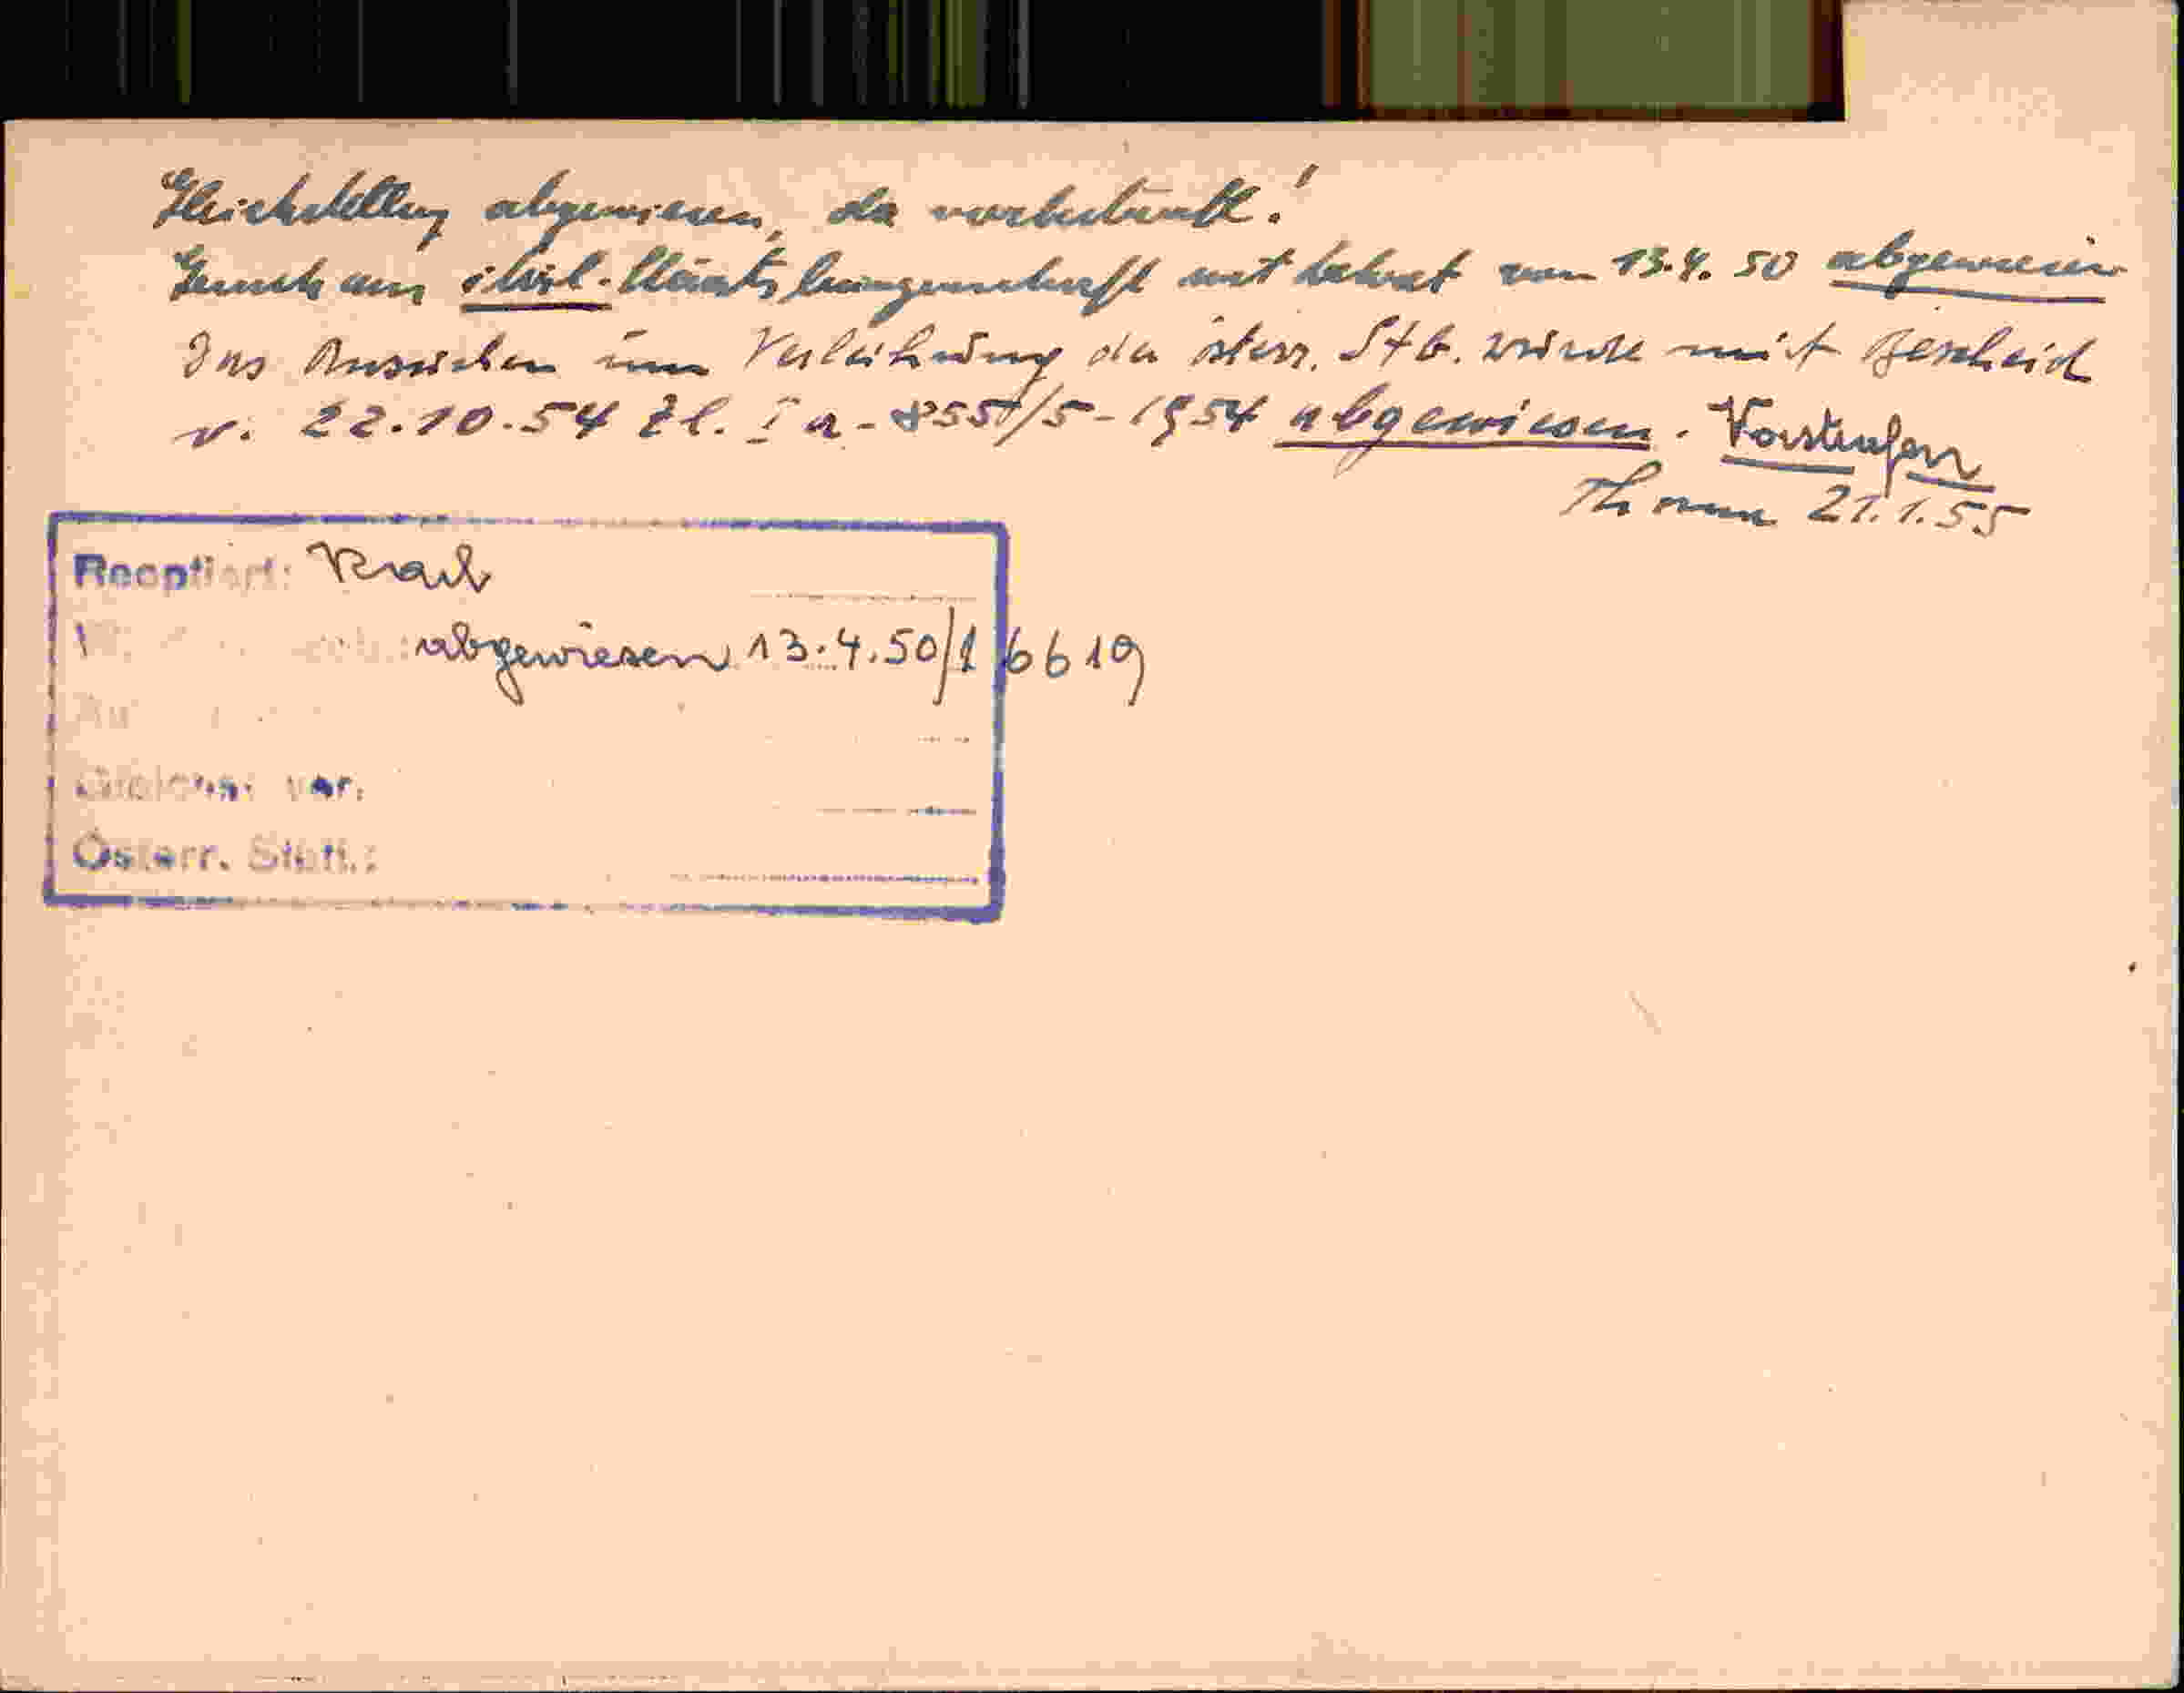 Gleichstellung abgewiesen, da vorbestraft!
Gesuch um österr. Staatsbürgerschaft mit Dekret vom 13.4.50 abgewiesen
Das Ansuchen um Verleihung der österr. Stb. wurde mit Bescheid
v. 22.10.54 Zl. I a-855/5-1954 abgewiesen. Vorstrafen
21.1.55
Reoptiert:
abgewiesen 13.4.50/16619
Gleichst. Ver.
Österr. Stb.: